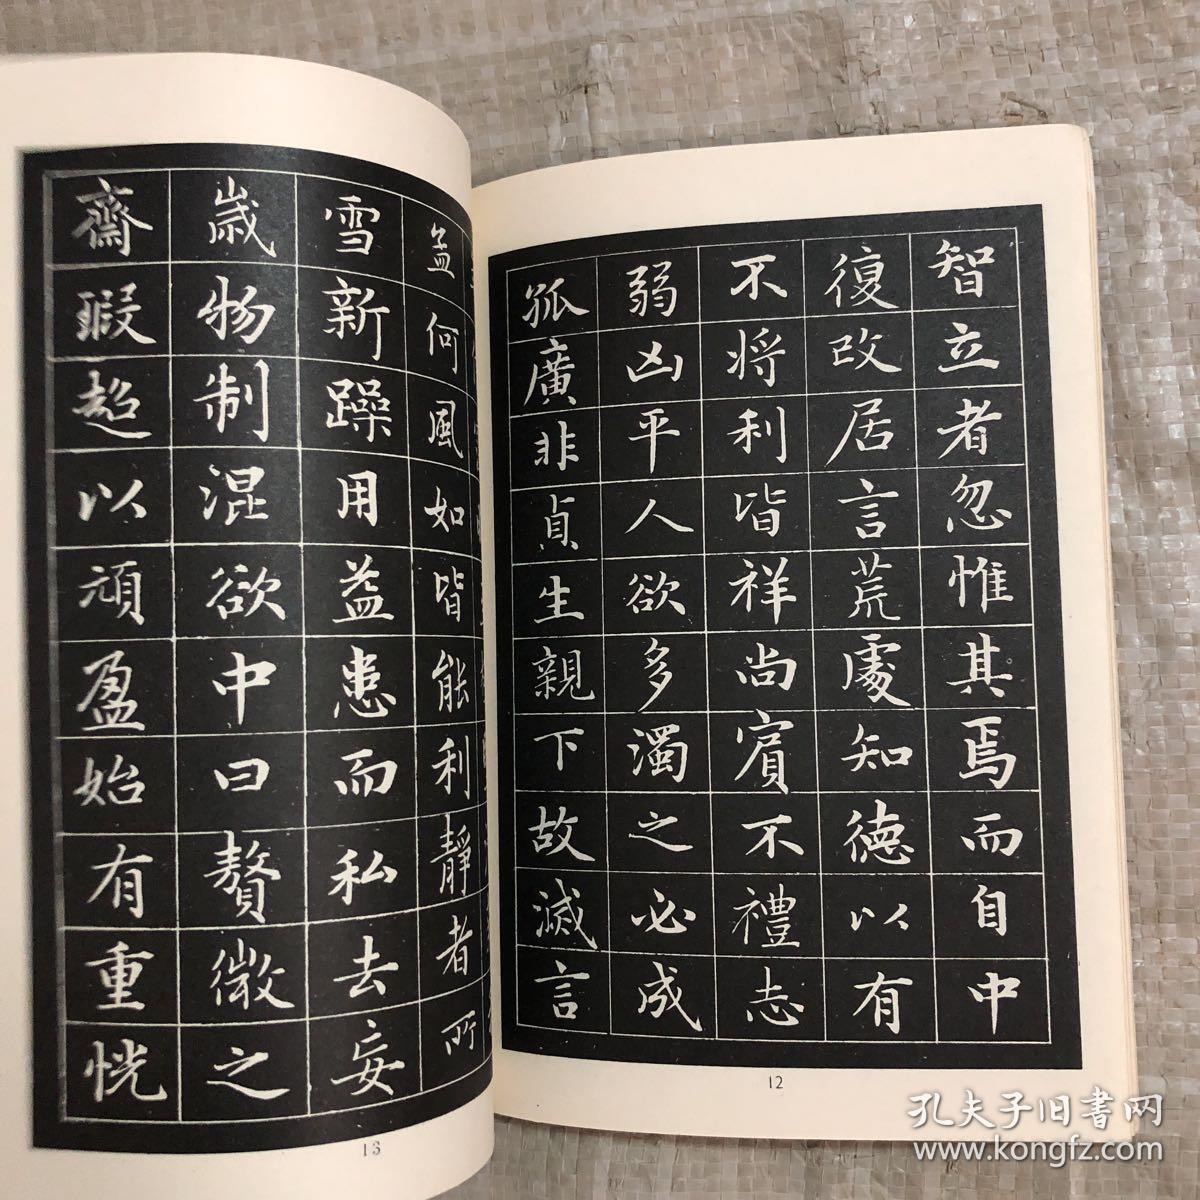 智立者忽惟其焉而自中
復改居言荒處知德以有
不將利皆祥尚賓不禮志
弱凶平人欲多濁之必成
孤廣非貞生親下故滅言
12
孟何風如皆能利靜者所
雪新躁用益患而私去妄
歲物制混欲中曰贅微之
齋瑕超以頑盈始有重恍
13
孔夫子旧書网
www.kongfz.com